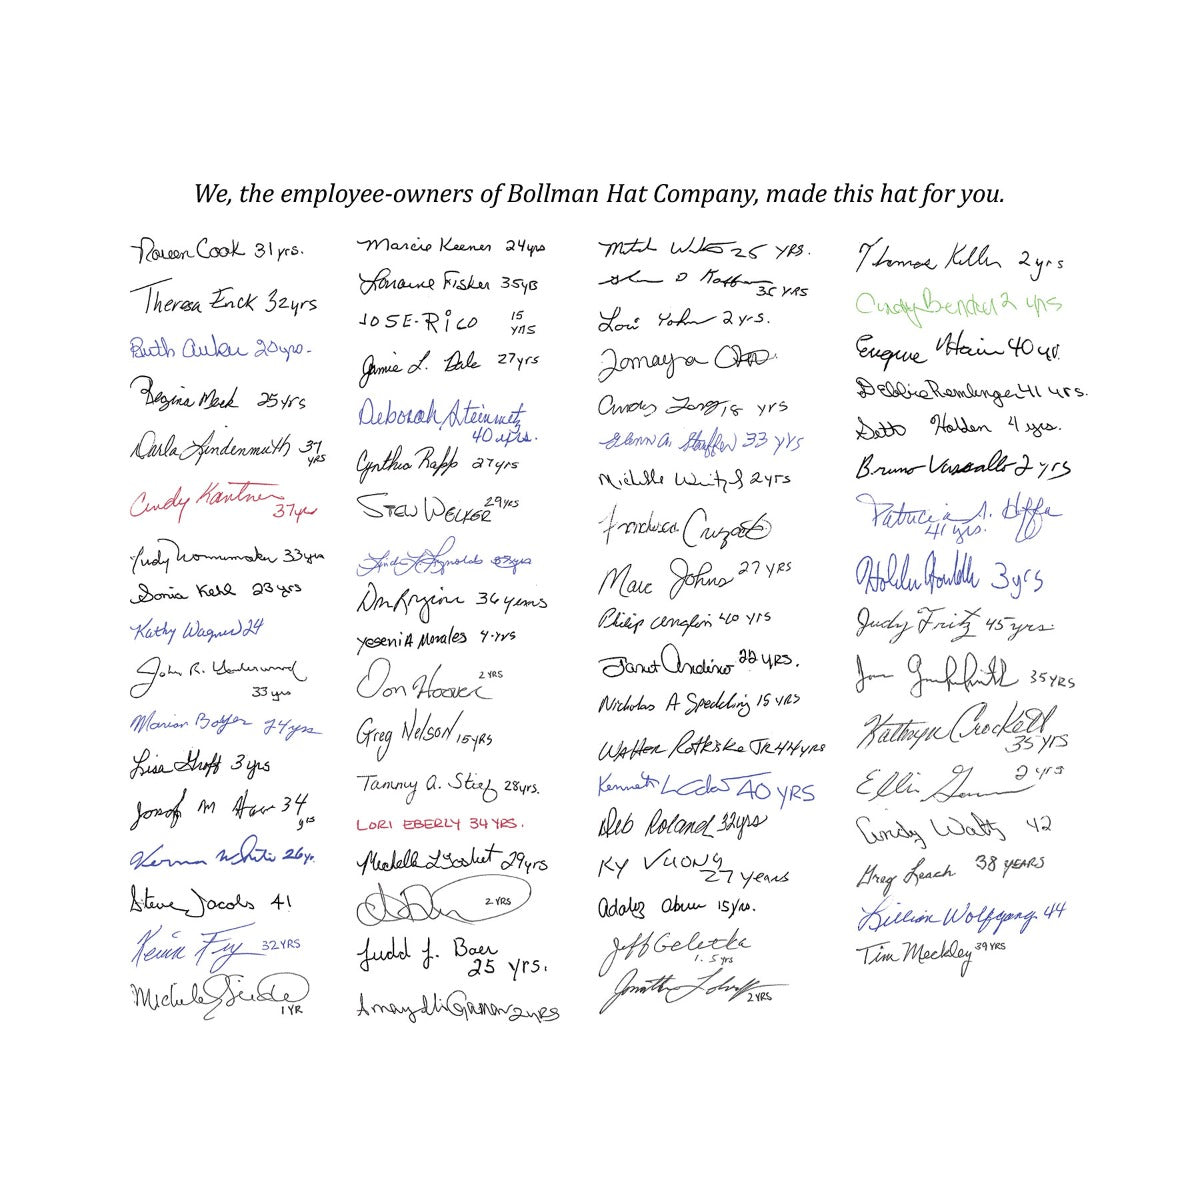 We, the employee-owners of Bollman Hat Company, made this hat for you.
Cook 31yrs.
Theresa Enck 32yrs
Ruth Auker 20yrs.
Regina Meck 25yrs
Darla Lindenmuth 37
YRS
Cindy Kantner
37yrs
Judy 33yrs
Sonia Kehl 23yrs
Kathy Wagner 24
John R.
33yrs
Marian Boyer 24yrs
Lisa Groff 3yrs
Josef M 34
yrs
White 26yr.
Steve Jacobs 41
Kevin Fry 32YRS
Michele
1YR
Marcie Keener 24yrs
Lorraine Fisher 35yrs
JOSE-RICO 15
yrs
Jamie L. Dale 27yrs
Deborah Steinmetz
40 yrs.
Cynthia Rapp 27yrs
STEW WELKER 29YRS
Reynolds
36 years
YeseniA Morales 4-yrs
Don Hoover 2YRS
Greg Nelson 15YRS
Tammy A. Stief 28yrs.
LORI EBERLY 34 YRS.
29yrs
2 YRS
Judd J. Baer
25 yrs.
2YRS
Mitch 25 YRS.
D
35 YRS
Lori Yohn 2yrs.
Tomayra
Cindy 18 yrs
Glenn A. Stauffer 33 yrs
Michelle 2yrs
Francisca
Marc Johns 27YRS
Philip 40 yrs
Janet Andino 22YRS.
Nicholas A Speckling 15YRS
Walter Rothiske JR 44yrs
Kenneth 40 YRS
Deb Roland 32yrs
KY VUONG
27 years
15yrs.
Jeff Geletka
1.5yrs
Jonathan
2YRS
Thomas Keller 2yrs
Cindy Bender 2 yrs
Eugene Hain 40yr.
Debbie Remlinger 41 yrs.
Seth Holden 4 yrs.
Bruno Vassallo 2 yrs
Patricia A. Heffa
41 yrs.
3yrs
Judy Fritz 45yrs.
35YRS
Kathryn Crockett
35 YRS
2 yrs
Cindy Waltz 42
Greg Leach 38 YEARS
Lillian Wolfgang 44
Tim Meckley 39YRS